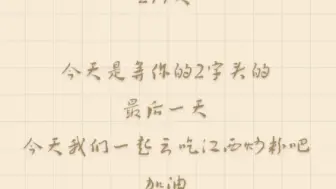 今天是等你的2字头的
最后一天
今天我们一起去吃江西炒粉吧
加油